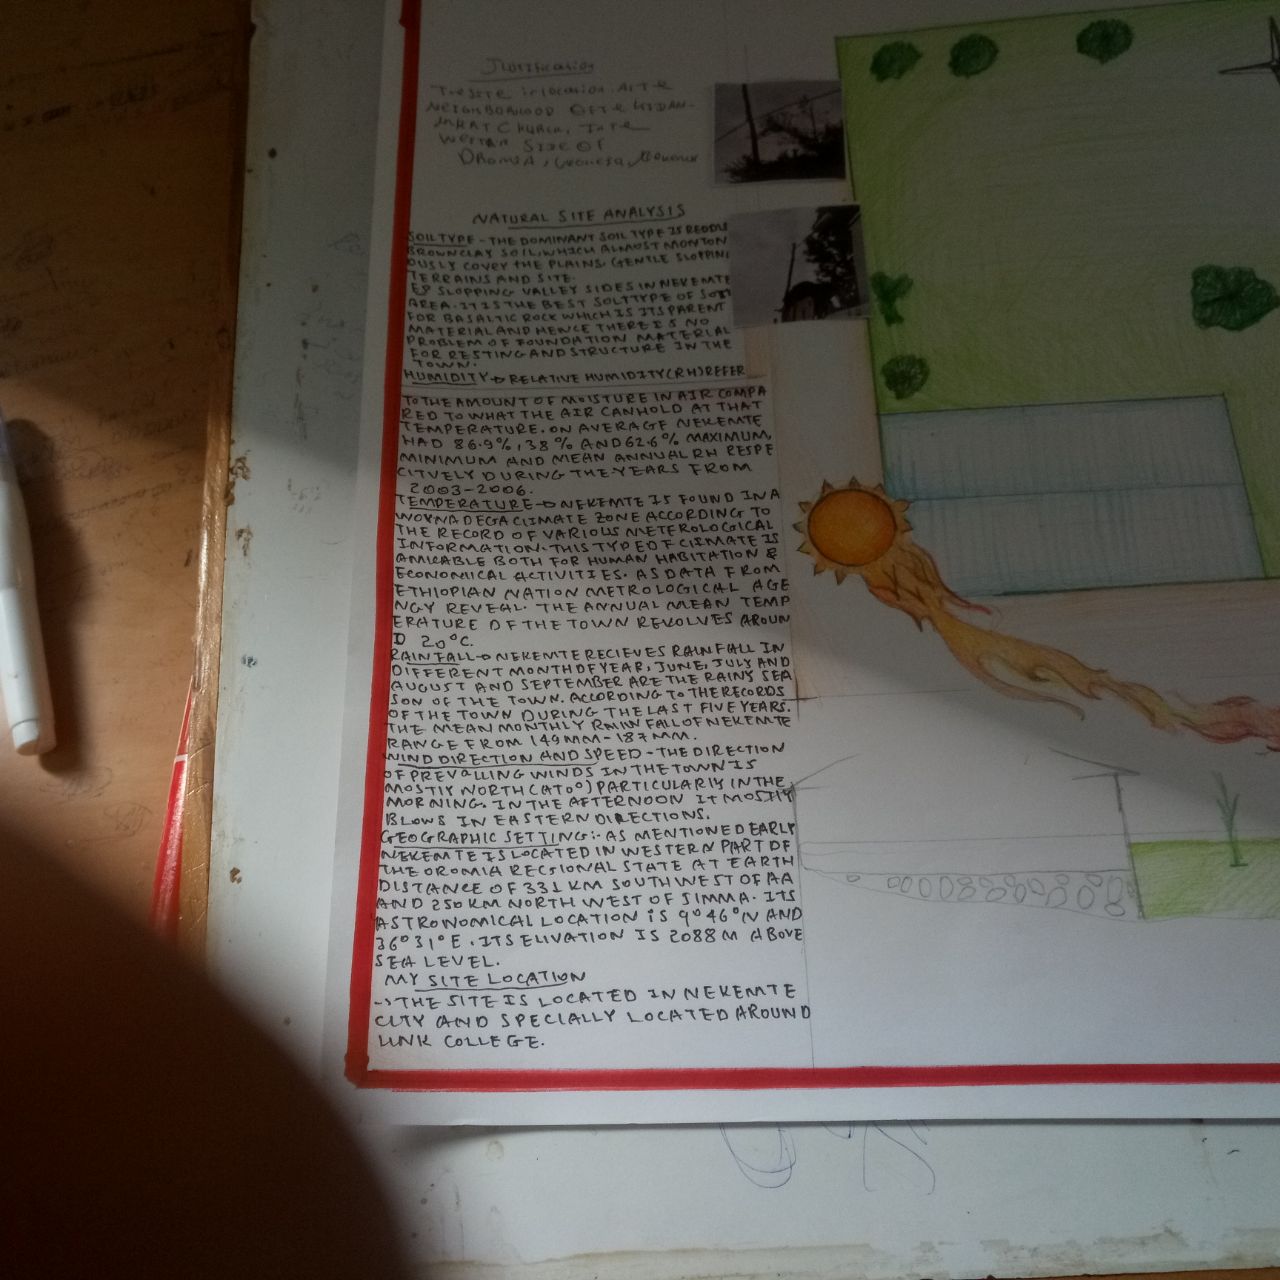 Justification
NEIGHBORHOOD OF
CHURCH,
NATURAL SITE ANALYSIS
SOIL TYPE - THE DOMINANT SOIL TYPE IS REDDIS
BROWN CLAY SOIL, WHICH ALMOST MONTON
OUSLY COVEY THE PLAINS, GENTLE SLOPPING
TERRAINS AND SITE.
EP SLOPPING VALLEY SIDES IN NEKEMTE
AREA. IT IS THE BEST SOLT TYPE OF SOIT
FOR BASALTIC ROCK WHICH IS ITS PARENT
MATERIAL AND HENCE THERE IS NO
PROBLEM OF FOUNDATION MATERIAL
FOR RESTING AND STRUCTURE IN THE
TOWN.
HUMIDITY → RELATIVE HUMIDITY (RH) REFER
TO THE AMOUNT OF MOISTURE IN AIR COMPA
RED TO WHAT THE AIR CAN HOLD AT THAT
TEMPERATURE. ON AVERAGE NEKEMTE
HAD 86.9%, 38% AND 62.6% MAXIMUM,
MINIMUM AND MEAN ANNUAL RH RESPE
CITVELY DURING THE YEARS FROM
2003-2006.
TEMPERATURE → NEKEMTE IS FOUND IN A
WOYNA DEGA CLIMATE ZONE ACCORDING TO
THE RECORD OF VARIOUS METEROLOGICAL
INFORMATION. THIS TYPE OF CLEMATE IS
AMICABLE BOTH FOR HUMAN HABITATION &
ECONOMICAL ACTIVITIES. AS DATA FROM
ETHIOPIAN NATION METROLOGICAL AGE
NGY REVEAL. THE ANNUAL MEAN TEMP
ERATURE OF THE TOWN REVOLVES AROUN
D 20°C.
RAINFALL → NEKEMTE RECIEVES RAINFALL IN
DIFFERENT MONTH OF YEAR, JUNE, JULY AND
AUGUST AND SEPTEMBER ARE THE RAINY SEA
SON OF THE TOWN. ACCORDING TO THE RECORDS
OF THE TOWN DURING THE LAST FIVE YEARS.
THE MEAN MONTHLY RAIN FALL OF NEKEMTE
RANGE FROM 149MM - 187MM.
WIND DIRECTION AND SPEED - THE DIRECTION
OF PREVALLING WINDS IN THE TOWN IS
MOSTLY NORTH (AT 0°) PARTICULARLY IN THE
MORNING. IN THE AFTERNOON IT MOSTLY
BLOWS IN EASTERN DIRECTIONS.
GEOGRAPHIC SETTING:- AS MENTIONED EARLY
NEKEMTE IS LOCATED IN WESTERN PART OF
THE OROMIA REGSIONAL STATE AT EARTH
DISTANCE OF 331 KM SOUTH WEST OF AA
AND 250KM NORTH WEST OF JIMMA. ITS
ASTRONOMICAL LOCATION IS 9°46°N AND
36°31°E. ITS ELIVATION IS 2088 M ABOVE
SEA LEVEL.
MY SITE LOCATION
→ THE SITE IS LOCATED IN NEKEMTE
CITY AND SPECIALLY LOCATED AROUND
LINK COLLEGE.